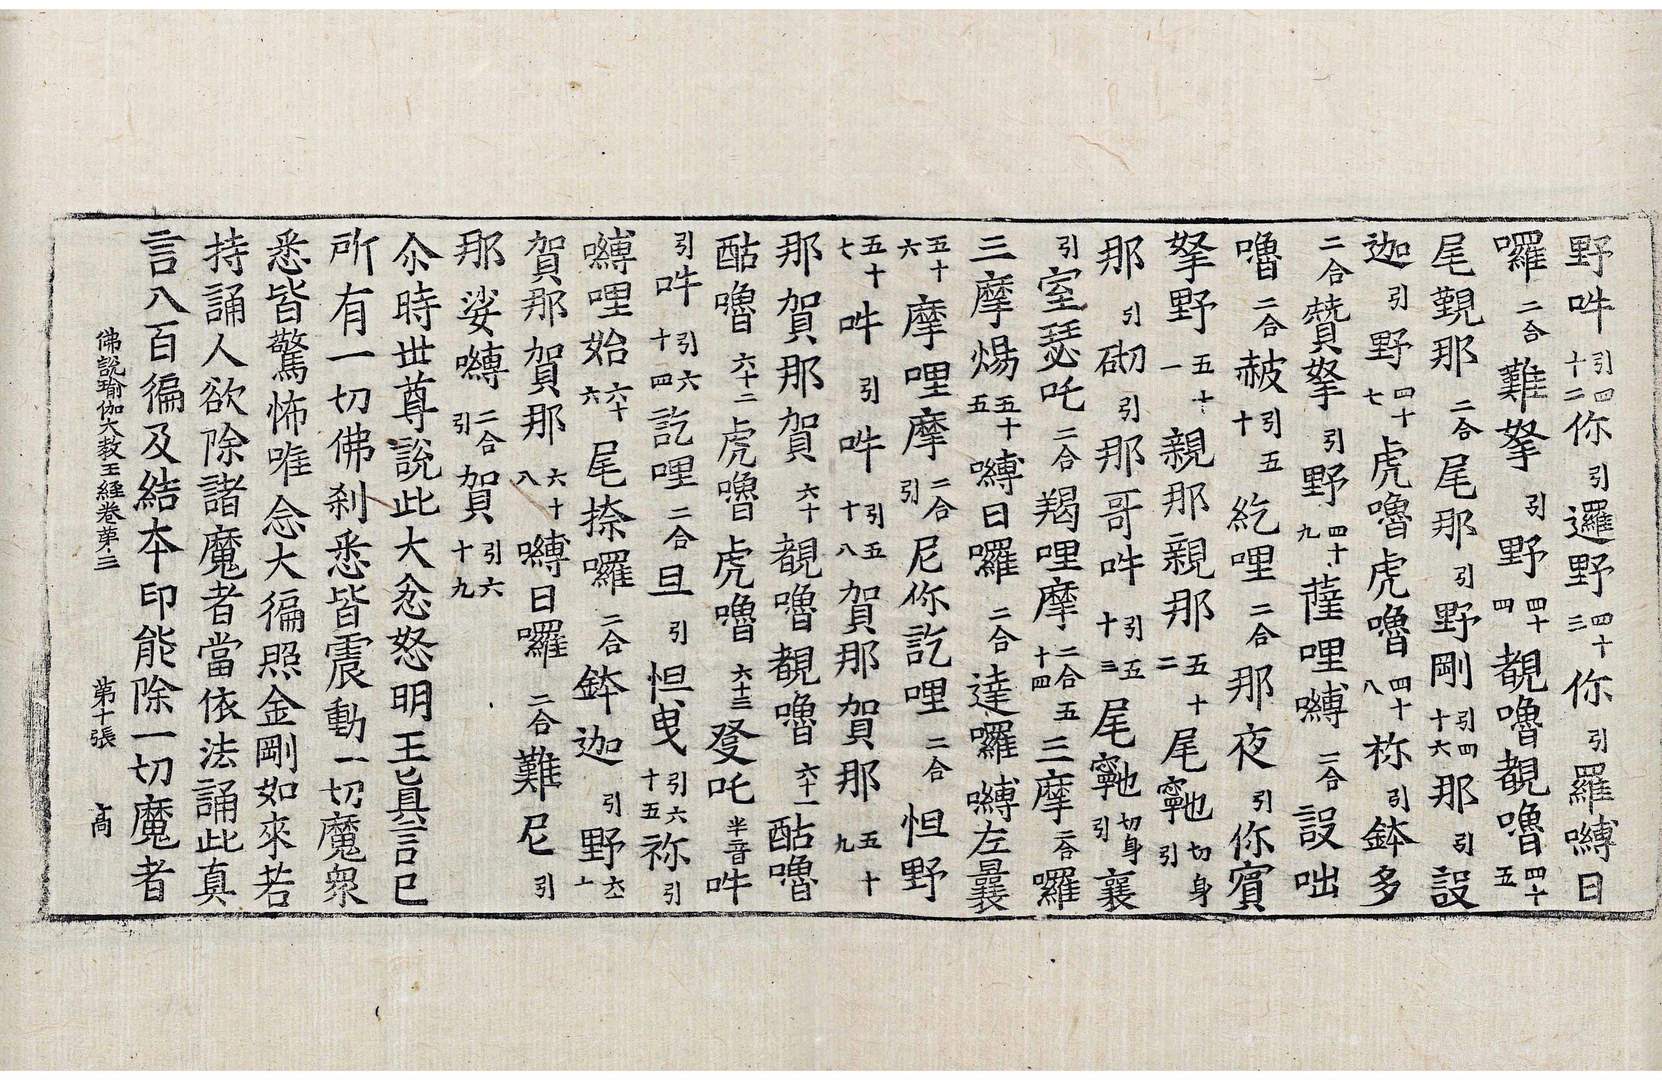 野吽引四十二你引邏野四十三你引羅嚩日
囉二合難拏引野四十四覩嚕覩嚕四十五
尾覲那二合尾那引野剛引四十六那引設
迦引野四十七虎嚕虎嚕四十八祢引鉢多
二合贊拏引野四十九薩哩嚩二合設咄
嚕二合赦引五十紇哩二合那夜引你賓
拏野五十一親那親那五十二尾𩕳切身引
那引砌引那哥吽引五十三尾𩕳切身引襄
引室瑟吒二合羯哩摩二合五十四三摩二合囉
三摩煬五十五嚩日囉二合達囉嚩左曩
五十六摩哩摩二合引尼你訖哩二合怛野
五十七吽引吽引五十八賀那賀那五十九
那賀那賀六十覩嚕覩嚕六十一酤嚕
酤嚕六十二虎嚕虎嚕六十三發吒半音吽
引吽引六十四訖哩二合旦引怛曳引六十五祢引
嚩哩始六十六尾捺囉二合鉢迦引野六十七
賀那賀那六十八嚩日囉二合難尼引
那娑嚩二合引賀引六十九
尒時世尊說此大忿怒明王真言已
所有一切佛刹悉皆震動一切魔衆
悉皆驚怖唯念大徧照金剛如來若
持誦人欲除諸魔者當依法誦此真
言八百徧及結本印能除一切魔者
佛說瑜伽大教王經卷第三 第十張 高